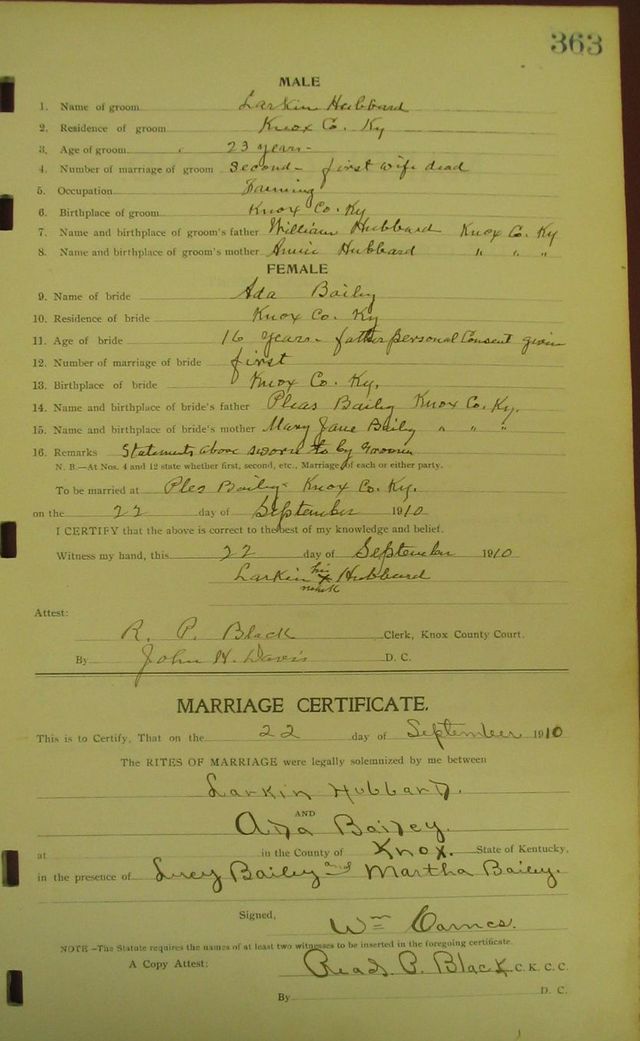 363
MALE
1. Name of groom Larkin Hubbard
2. Residence of groom Knox Co. Ky
3. Age of groom 23 years -
4. Number of marriage of groom second - first wife dead
5. Occupation Farming
6. Birthplace of groom Knox Co. Ky
7. Name and birthplace of groom's father William Hubbard Knox Co. Ky
8. Name and birthplace of groom's mother Annie Hubbard " " "
FEMALE
9. Name of bride Ada Baily
10. Residence of bride Knox Co. Ky
11. Age of bride 16 years - father personal Consent given
12. Number of marriage of bride first
13. Birthplace of bride Knox Co. Ky.
14. Name and birthplace of bride's father Pleas Baily Knox Co. Ky.
15. Name and birthplace of bride's mother Mary Jane Baily " " "
16. Remarks Statements above sworn to by Groom
N. B.—At Nos. 4 and 12 state whether first, second, etc., Marriage of each or either party.
To be married at Ples Baily - Knox Co. Ky.
on the 22 day of September 1910
I CERTIFY that the above is correct to the best of my knowledge and belief.
Witness my hand, this 22 day of September 1910
Larkin his x mark Hubbard
Attest:
R. P. Black Clerk, Knox County Court.
By John H. Davis D. C.
MARRIAGE CERTIFICATE.
This is to Certify, That on the 22 day of September 1910
The RITES OF MARRIAGE were legally solemnized by me between
Larkin Hubbard.
AND
Ada Bailey.
at in the County of Knox. State of Kentucky,
in the presence of Lucy Bailey and Martha Bailey.
Signed, Wm Carnes.
NOTE—The Statute requires the names of at least two witnesses to be inserted in the foregoing certificate.
A Copy Attest: Read P. Black C. K. C. C.
By D. C.